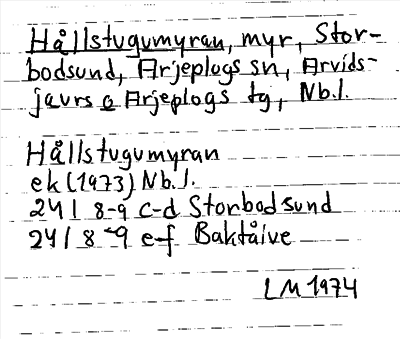 Hållstugumyran, myr, Stor-
bodsund, Arjeplogs sn, Arvids-
jaurs o Arjeplogs tg, Nb.l.
Hållstugumyran
ek (1973) Nb.l.
24 I 8-9 c-d Storbodsund
24 I 8-9 e-f Baktåive
LM 1974